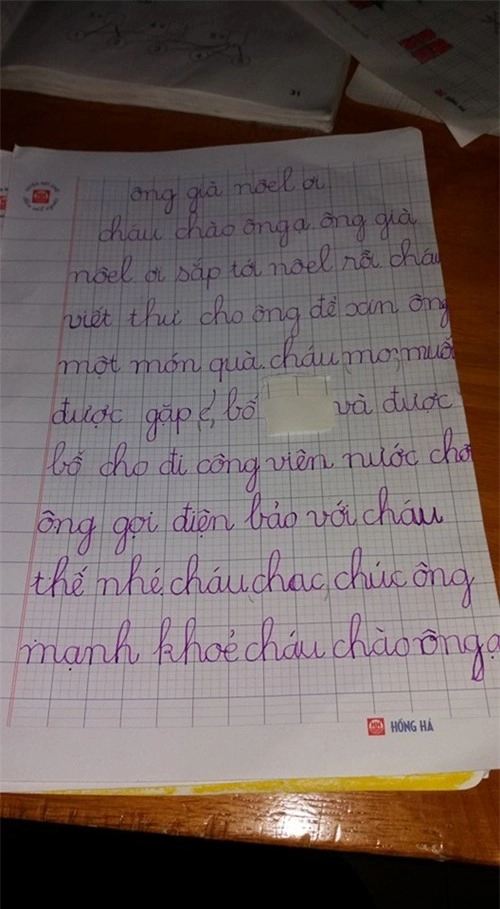 ông già nôel ơi
cháu chào ông ạ ông già
nôel ơi sắp tới nôel rồi cháu
viết thư cho ông để xin ông
một món quà. cháu mơ muốn
được gặp bố và được
bố cho đi công viên nước chơi
ông gọi điện bảo với cháu
thế nhé. cháu chac, chúc ông
mạnh khoẻ cháu chào ông ạ
HỒNG HÀ